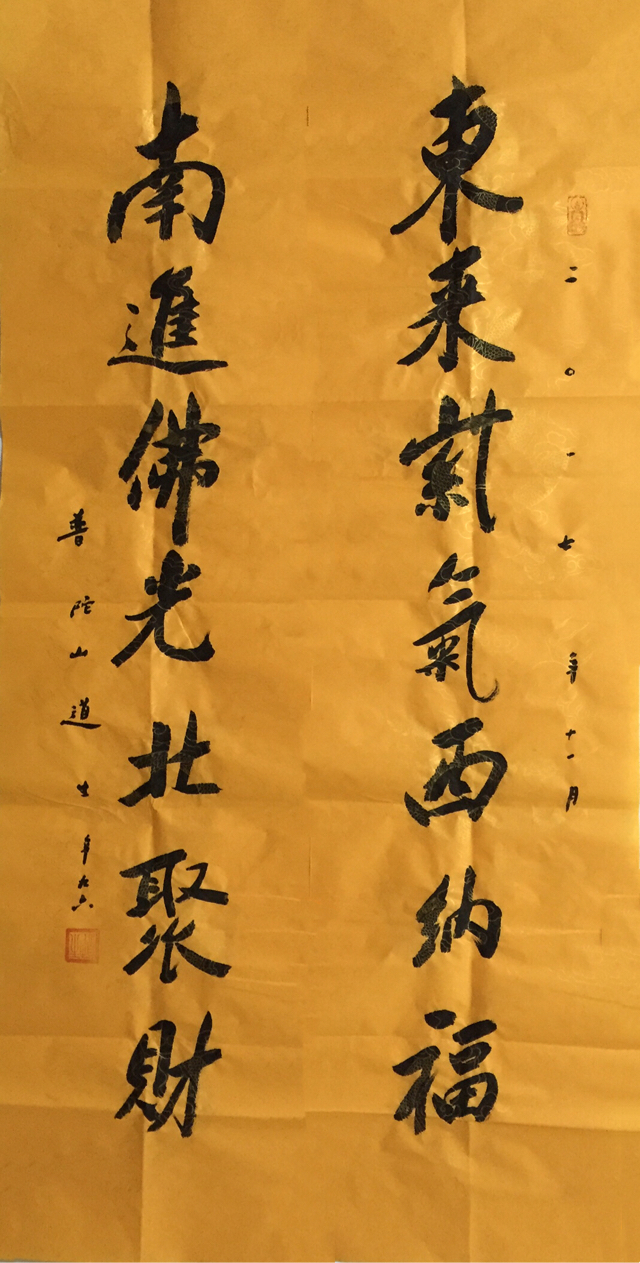 二〇一七年十一月
東来紫氣西纳福
南進佛光北聚財
普陀山道生年九六